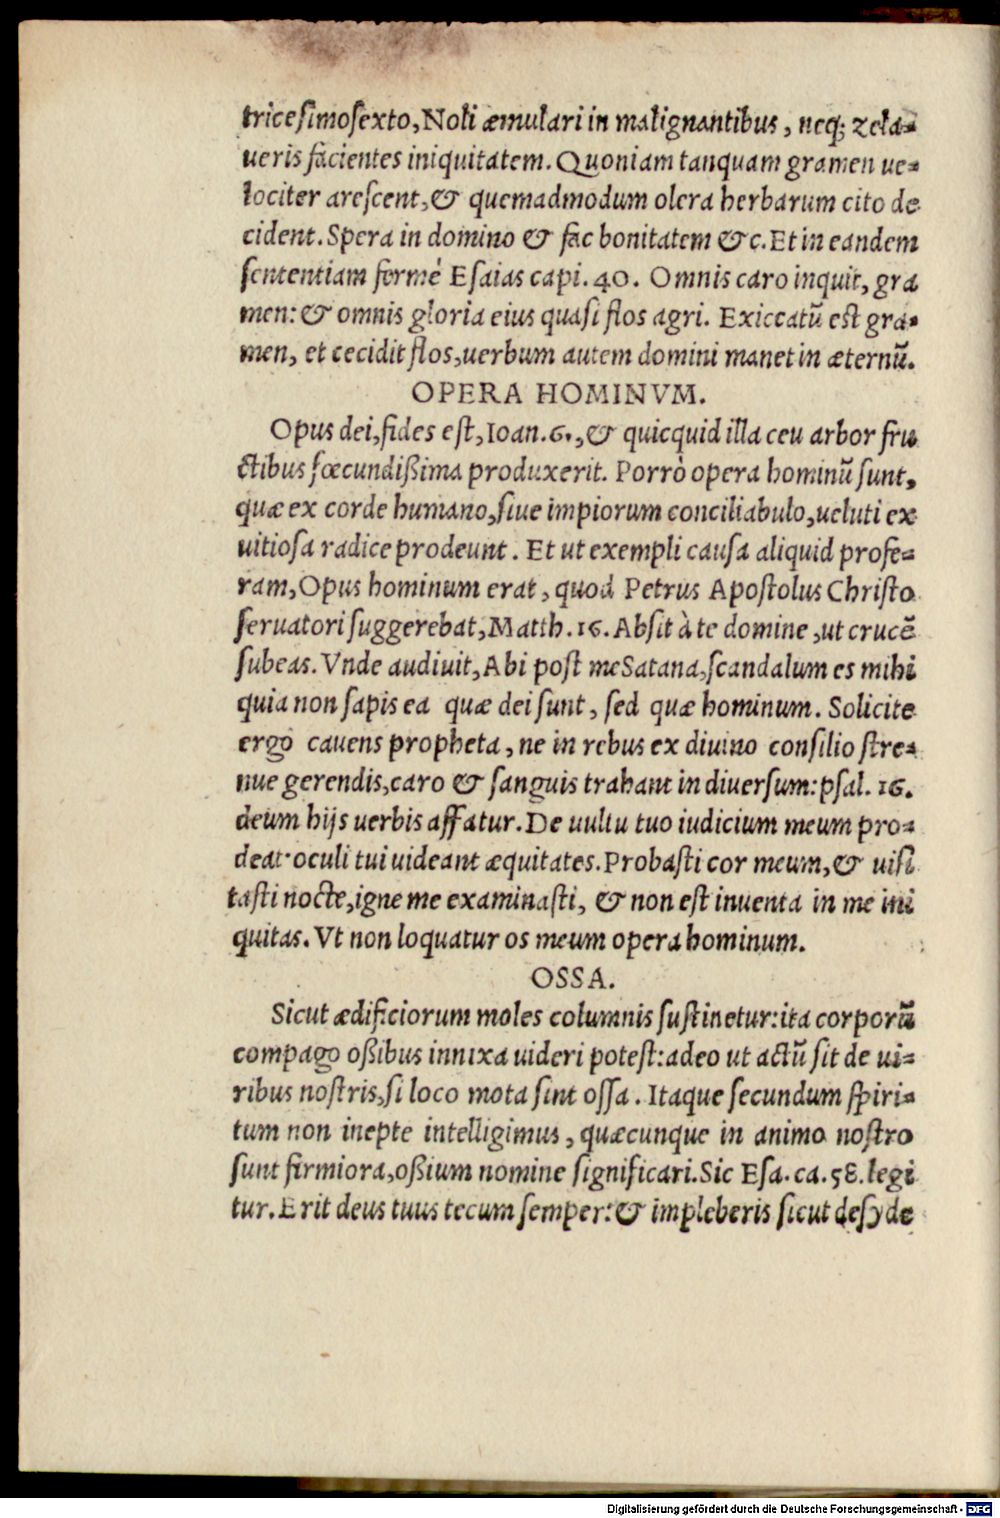 tricesimosexto, Noli æmulari in malignantibus, neq; zela-
ueris facientes iniquitatem. Quoniam tanquam gramen ue-
lociter arescent, & quemadmodum olera herbarum cito de
cident. Spera in domino & fac bonitatem &c. Et in eandem
sententiam fermè Esaias capi. 40. Omnis caro inquit, gra
men: & omnis gloria eius quasi flos agri. Exiccatū est gra-
men, et cecidit flos, uerbum autem domini manet in æternū.
OPERA HOMINVM.
Opus dei, fides est, Ioan. 6., & quicquid illa ceu arbor fru
ctibus fœcundißima produxerit. Porrò opera hominū sunt,
quæ ex corde humano, siue impiorum conciliabulo, ueluti ex
uitiosa radice prodeunt. Et ut exempli causa aliquid profe-
ram, Opus hominum erat, quod Petrus Apostolus Christo
seruatori suggerebat, Matth. 16. Absit à te domine, ut crucē
subeas. Vnde audiuit, Abi post me Satana, scandalum es mihi
quia non sapis ea quæ dei sunt, sed quæ hominum. Solicite
ergo cauens propheta, ne in rebus ex diuino consilio stre-
nue gerendis, caro & sanguis trahant in diuersum: psal. 16.
deum hijs uerbis affatur. De uultu tuo iudicium meum pro-
deat oculi tui uideant æquitates. Probasti cor meum, & uisi
tasti nocte, igne me examinasti, & non est inuenta in me ini
quitas. Vt non loquatur os meum opera hominum.
OSSA.
Sicut ædificiorum moles columnis sustinetur: ita corporū
compago oßibus innixa uideri potest: adeo ut actū sit de ui-
ribus nostris, si loco mota sint ossa. Itaque secundum spiri-
tum non inepte intelligimus, quæcunque in animo nostro
sunt firmiora, oßium nomine significari. Sic Esa. ca. 58. legi
tur. Erit deus tuus tecum semper: & impleberis sicut desyde
Digitalisierung gefördert durch die Deutsche Forschungsgemeinschaft - DFG